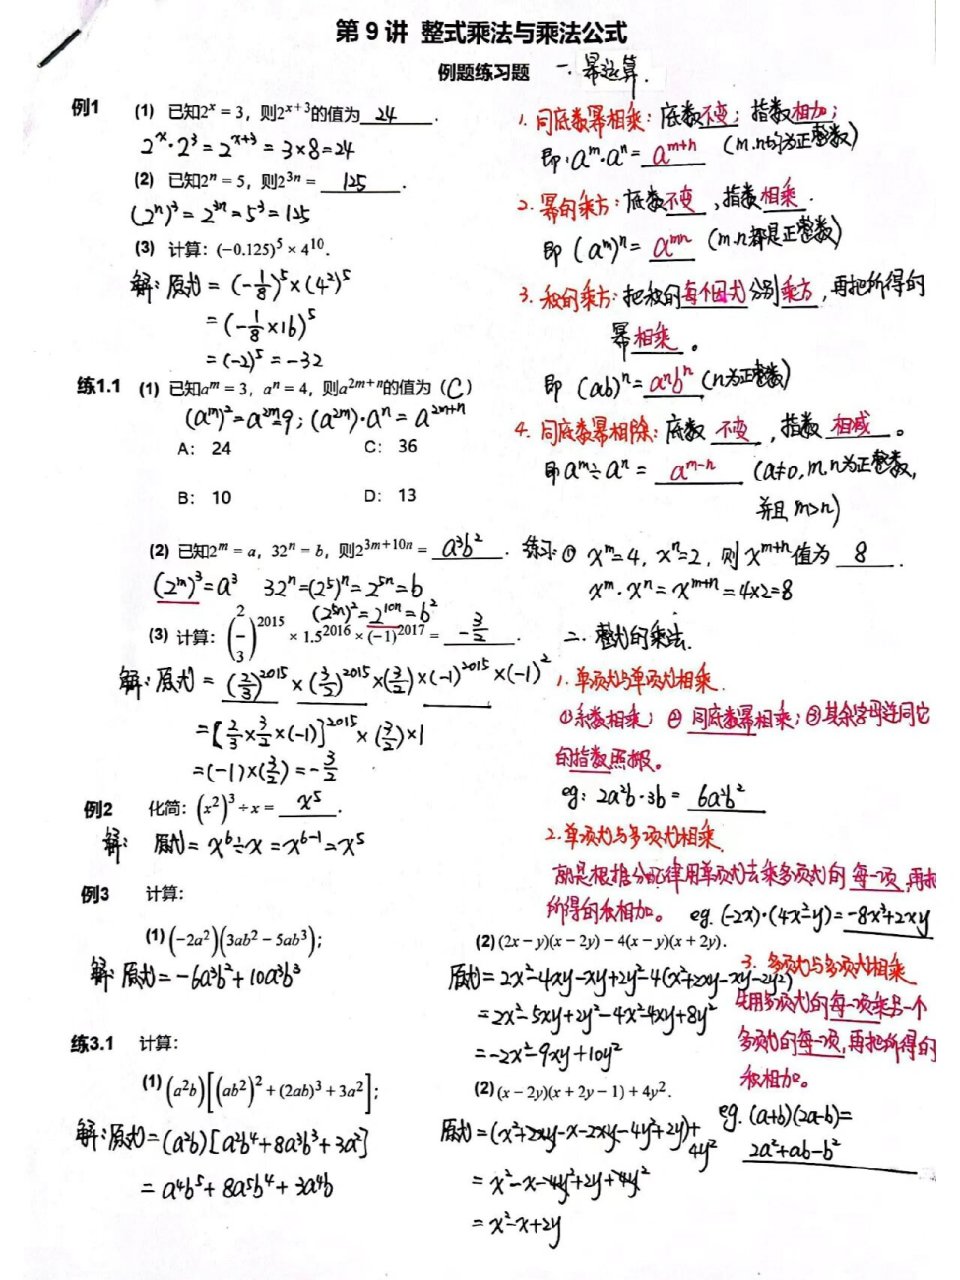 第 9 讲 整式乘法与乘法公式
例题练习题
一. 幂运算.
例1
(1) 已知2^x = 3，则2^{x+3}的值为 24 .
2^x·2^3 = 2^{x+3} = 3×8 = 24
(2) 已知2^n = 5，则2^{3n} = 125 .
(2^n)^3 = 2^{3n} = 5^3 = 125
(3) 计算：(−0.125)^5 × 4^{10}.
解：原式 = (−1/8)^5×(4^2)^5
= (−1/8×16)^5
= (−2)^5 = −32
练1.1 (1) 已知a^m = 3，a^n = 4，则a^{2m+n}的值为（C）
(a^m)^2 = a^{2m} = 9；(a^{2m})·a^n = a^{2m+n}
A： 24
C： 36
B： 10
D： 13
(2) 已知2^m = a，32^n = b，则2^{3m+10n} = a^3b^2 .
(2^m)^3 = a^3 32^n = (2^5)^n = 2^{5n} = b
(2^{5n})^2 = 2^{10n} = b^2
(3) 计算：(2/3)^{2015} × 1.5^{2016} × (−1)^{2017} = −3/2 .
解：原式 = (2/3)^{2015} × (3/2)^{2015} × (3/2) × (−1)^{2015} × (−1)^2
= [2/3 × 3/2 × (−1)]^{2015} × (3/2) × 1
= (−1)×(3/2) = −3/2
例2 化简：(x^2)^3 ÷ x = x^5 .
解： 原式 = x^6÷x = x^{6−1} = x^5
例3 计算：
(1) (−2a^2)(3ab^2 − 5ab^3)；
解：原式 = −6a^3b^2 + 10a^3b^3
(2) (2x − y)(x − 2y) − 4(x − y)(x + 2y).
原式 = 2x^2−4xy−xy+2y^2−4(x^2+2xy−xy−2y^2)
= 2x^2−5xy+2y^2−4x^2−4xy+8y^2
= −2x^2−9xy+10y^2
练3.1 计算：
(1) (a^2b)[(ab^2)^2 + (2ab)^3 + 3a^2]；
解：原式 = (a^2b)[a^2b^4 + 8a^3b^3 + 3a^2]
= a^4b^5 + 8a^5b^4 + 3a^4b
(2) (x − 2y)(x + 2y − 1) + 4y^2.
原式 = (x^2+2xy−x−2xy−4y^2+2y)+4y^2
= x^2−x−4y^2+2y+4y^2
= x^2−x+2y
1. 同底数幂相乘：底数不变；指数相加；
即：a^m·a^n = a^{m+n} (m.n均为正整数)
2. 幂的乘方：底数不变，指数相乘.
即 (a^m)^n = a^{mn} (m.n都是正整数)
3. 积的乘方：把积的每个因式分别乘方，再把所得的
幂相乘。
即 (ab)^n = a^nb^n (n为正整数)
4. 同底数幂相除：底数 不变，指数 相减。
即a^m÷a^n = a^{m−n} (a≠0, m.n为正整数,
并且 m>n)
练习：① x^m=4, x^n=2, 则x^{m+n}值为 8 .
x^m·x^n = x^{m+n} = 4×2 = 8
二. 整式的乘法.
1. 单项式与单项式相乘.
①系数相乘；②同底数幂相乘；③其余字母连同它
的指数照搬。
eg：2a^2b·3b = 6a^2b^2
2. 单项式与多项式相乘.
就是根据分配律用单项式去乘多项式的每一项,再把
所得的积相加。 eg. (−2x)·(4x^2−y) = −8x^3+2xy
3. 多项式与多项式相乘
先用多项式的每一项乘另一个
多项式的每一项,再把所得的
积相加。
eg. (a+b)(2a−b)=
2a^2+ab−b^2